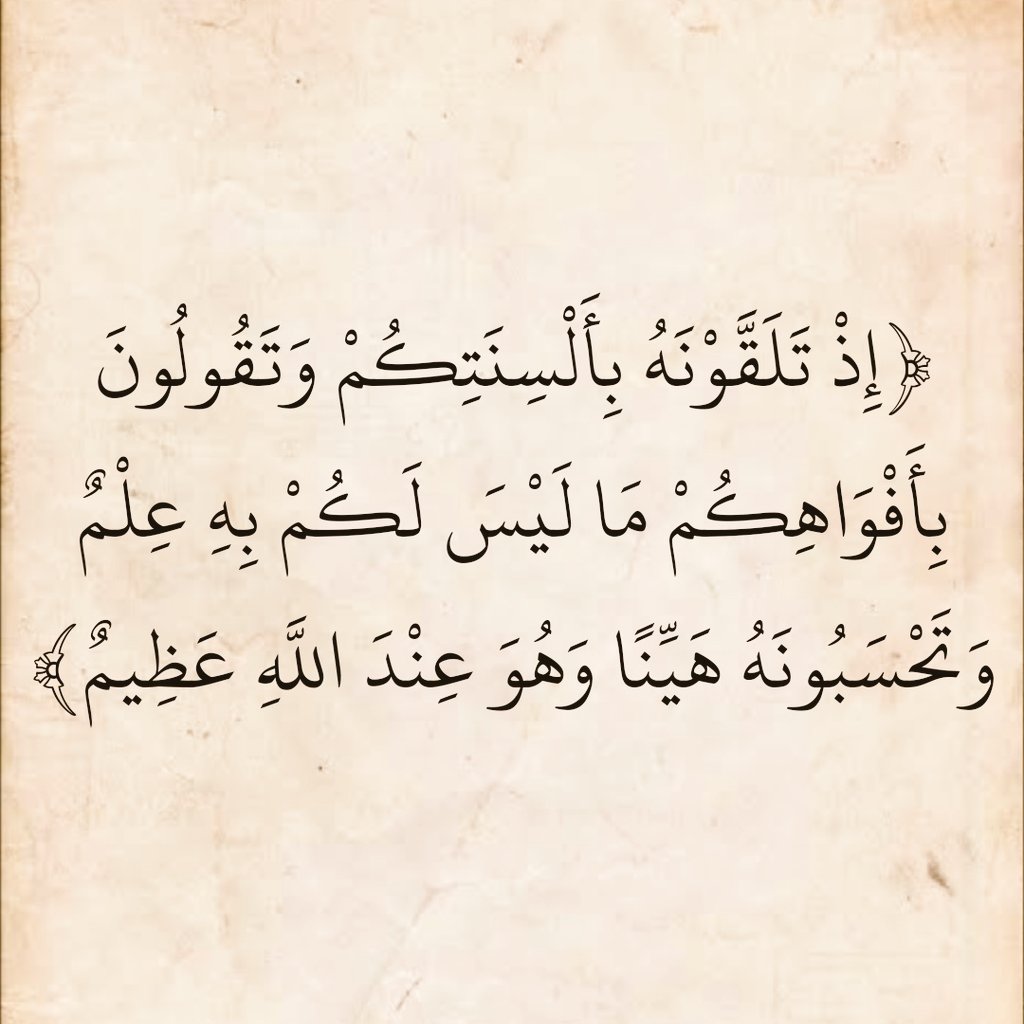 ﴿إِذْ تَلَقَّوْنَهُ بِأَلْسِنَتِكُمْ وَتَقُولُونَ
بِأَفْوَاهِكُمْ مَا لَيْسَ لَكُمْ بِهِ عِلْمٌ
وَتَحْسَبُونَهُ هَيِّنًا وَهُوَ عِنْدَ اللَّهِ عَظِيمٌ﴾